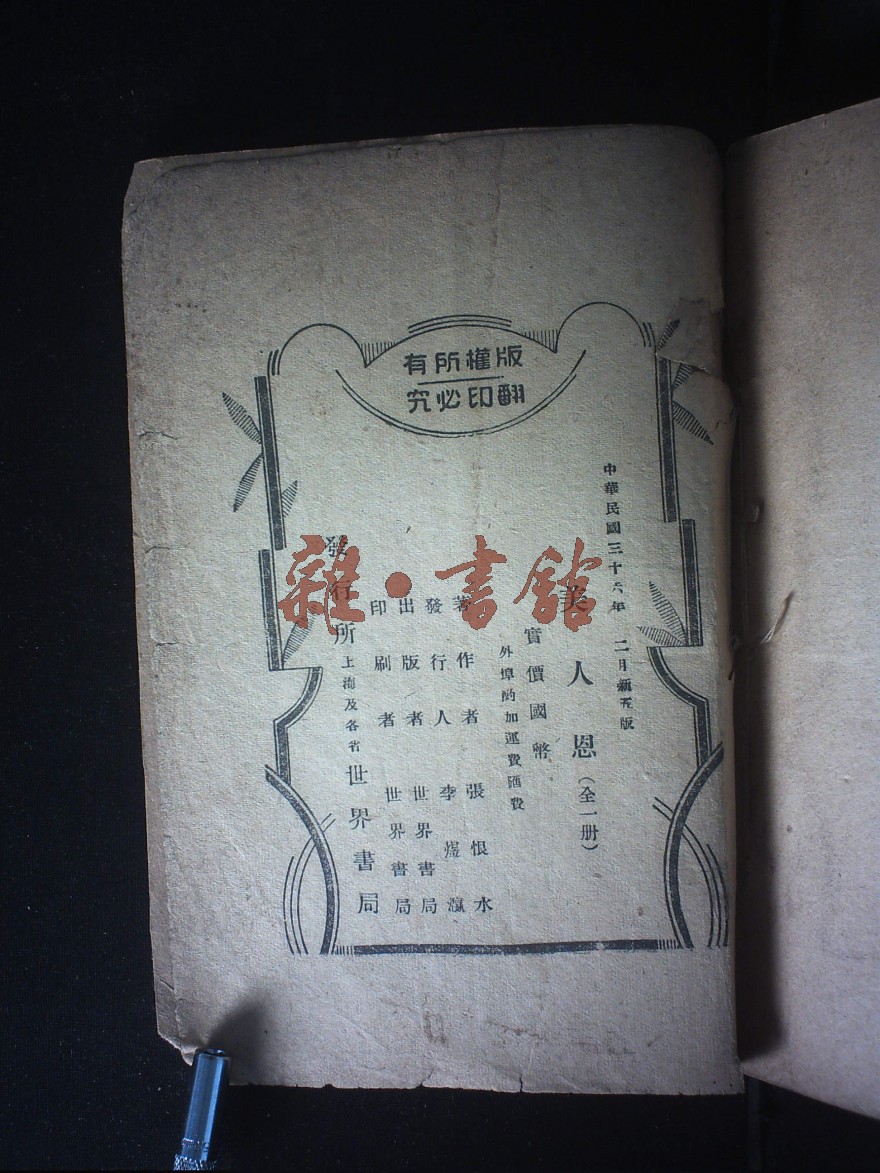 版權所有
翻印必究
中華民國三十六年 二月新五版
美人恩（全一册）
實價國幣
外埠酌加運費匯費
著作者 張恨水
發行人 李煜瀛
出版者 世界書局
印刷者 世界書局
發行所 上海及各省 世界書局
雜·書館